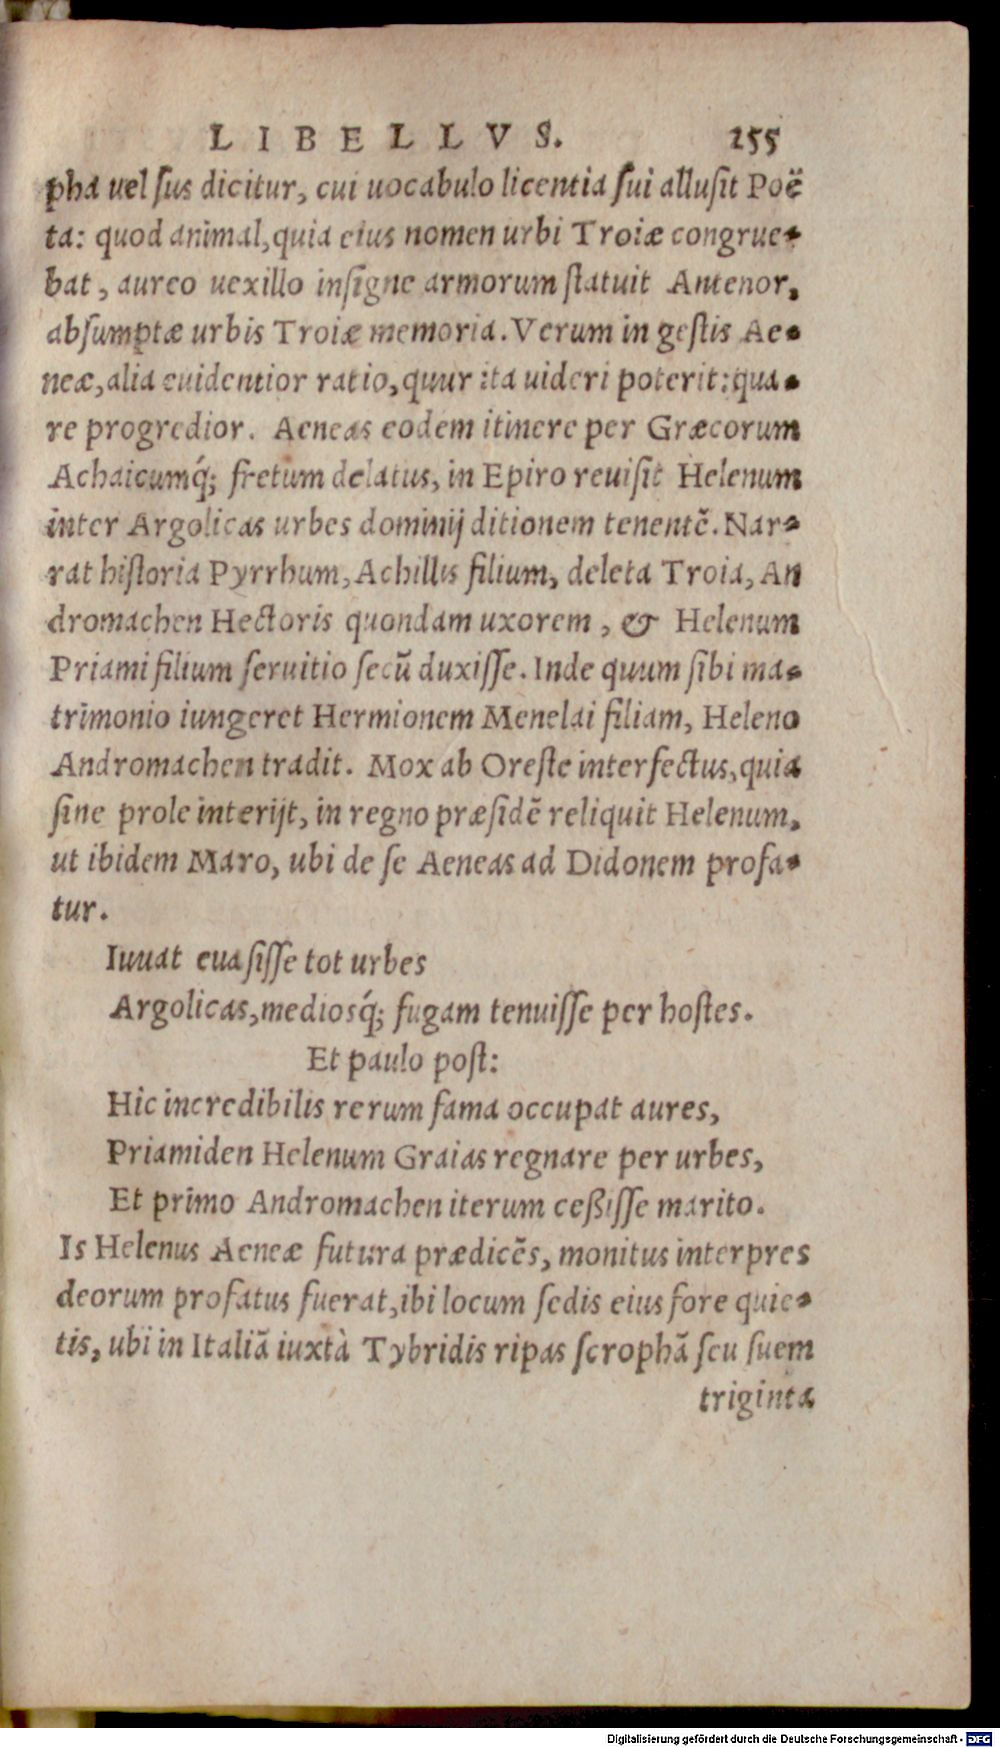 LIBELLVS. 255
pha uel ſus dicitur, cui uocabulo licentia ſui alluſit Poë
ta: quod animal, quia eius nomen urbi Troiæ congrue-
bat, aureo uexillo inſigne armorum ſtatuit Antenor,
abſumptæ urbis Troiæ memoria. Verum in geſtis Ae-
neæ, alia euidentior ratio, quur ita uideri poterit: qua-
re progredior. Aeneas eodem itinere per Græcorum
Achaicumq́; fretum delatus, in Epiro reuiſit Helenum
inter Argolicas urbes dominij ditionem tenentē. Nar-
rat hiſtoria Pyrrhum, Achillis filium, deleta Troia, An
dromachen Hectoris quondam uxorem, & Helenum
Priami filium ſeruitio ſecū duxiſſe. Inde quum ſibi ma-
trimonio iungeret Hermionem Menelai filiam, Heleno
Andromachen tradit. Mox ab Oreſte interfectus, quia
ſine prole interijt, in regno præſidē reliquit Helenum,
ut ibidem Maro, ubi de ſe Aeneas ad Didonem profa-
tur.
Iuuat euaſiſſe tot urbes
Argolicas, mediosq́; fugam tenuiſſe per hoſtes.
Et paulo poſt:
Hic incredibilis rerum fama occupat aures,
Priamiden Helenum Graias regnare per urbes,
Et primo Andromachen iterum ceßiſſe marito.
Is Helenus Aeneæ futura prædicēs, monitus interpres
deorum profatus fuerat, ibi locum ſedis eius fore quie-
tis, ubi in Italiā iuxtà Tybridis ripas ſcrophā ſeu ſuem
triginta
Digitalisierung gefördert durch die Deutsche Forschungsgemeinschaft - DFG